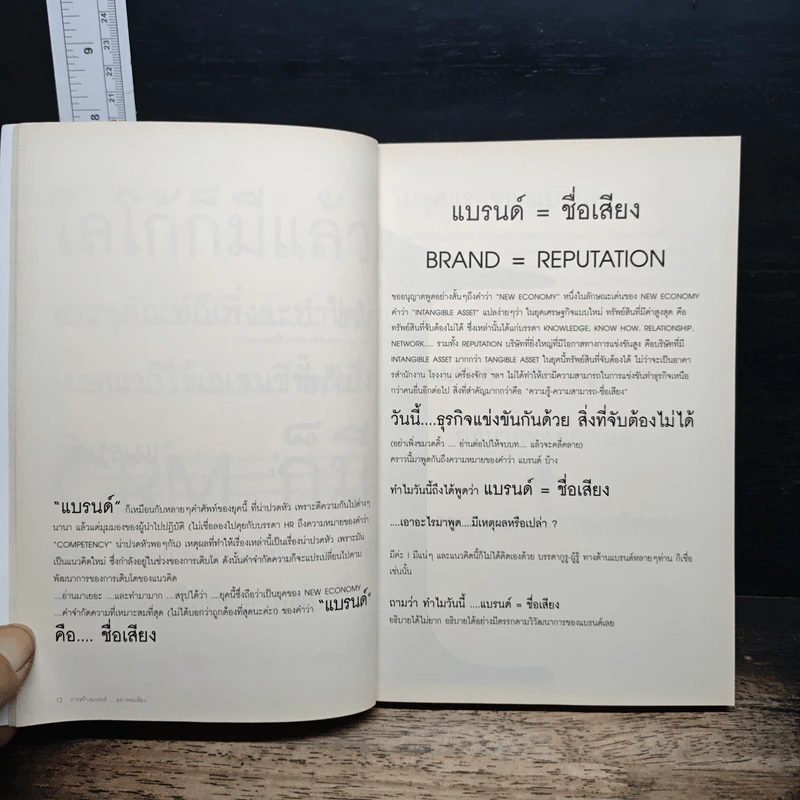 9
8
24
23
22
21
"แบรนด์" ก็เหมือนกับหลายๆคำศัพท์ของยุคนี้ ที่น่าปวดหัว เพราะตีความกันไปต่างๆ
นานา แล้วแต่มุมมองของผู้นำไปปฏิบัติ (ไม่เชื่อลองไปคุยกับบรรดา HR ถึงความหมายของคำว่า
"COMPETENCY" น่าปวดหัวพอๆกัน) เหตุผลที่ทำให้เรื่องเหล่านี้เป็นเรื่องน่าปวดหัว เพราะมัน
เป็นแนวคิดใหม่ ซึ่งกำลังอยู่ในช่วงของการเติบโต ดังนั้นคำจำกัดความก็จะแปรเปลี่ยนไปตาม
พัฒนาการของการเติบโตของแนวคิด
....อ่านมาเยอะ ....และทำมามาก ....สรุปได้ว่า ....ยุคนี้ซึ่งถือว่าเป็นยุคของ NEW ECONOMY
....คำจำกัดความที่เหมาะสมที่สุด (ไม่ได้บอกว่าถูกต้องที่สุดนะค่ะ!) ของคำว่า "แบรนด์"
คือ.... ชื่อเสียง
12
แบรนด์ = ชื่อเสียง
BRAND = REPUTATION
ขออนุญาตพูดอย่างสั้นๆถึงคำว่า "NEW ECONOMY" หนึ่งในลักษณะเด่นของ NEW ECONOMY
คำว่า "INTANGIBLE ASSET" แปลง่ายๆว่า ในยุคเศรษฐกิจแบบใหม่ ทรัพย์สินที่มีค่าสูงสุด คือ
ทรัพย์สินที่จับต้องไม่ได้ ซึ่งเหล่านั้นได้แก่บรรดา KNOWLEDGE, KNOW HOW, RELATIONSHIP,
NETWORK..... รวมทั้ง REPUTATION บริษัทที่ยิ่งใหญ่ที่มีโอกาสทางการแข่งขันสูง คือบริษัทที่มี
INTANGIBLE ASSET มากกว่า TANGIBLE ASSET ในยุคนี้ทรัพย์สินที่จับต้องได้ ไม่ว่าจะเป็นอาคา
รสำนักงาน โรงงาน เครื่องจักร ฯลฯ ไม่ได้ทำให้เรามีความสามารถในการแข่งขันทำธุรกิจเหนือ
กว่าคนอื่นอีกต่อไป สิ่งที่สำคัญมากกว่าคือ "ความรู้-ความสามารถ-ชื่อเสียง"
วันนี้....ธุรกิจแข่งขันกันด้วย สิ่งที่จับต้องไม่ได้
(อย่าเพิ่งขมวดคิ้ว .... อ่านต่อไปให้จบบท.... แล้วจะคลี่คลาย)
คราวนี้มาพูดกันถึงความหมายของคำว่า แบรนด์ บ้าง
ทำไมวันนี้ถึงได้พูดว่า แบรนด์ = ชื่อเสียง
....เอาอะไรมาพูด....มีเหตุผลหรือเปล่า ?
มีค่ะ ! มีแน่ๆ และแนวคิดนี้ก็ไม่ได้คิดเองด้วย บรรดากูรู-ผู้รู้ ทางด้านแบรนด์หลายๆท่าน ก็เชื่อ
เช่นนั้น
ถามว่า ทำไมวันนี้ ....แบรนด์ = ชื่อเสียง
อธิบายได้ไม่ยาก อธิบายได้อย่างมีตรรกตามวิวัฒนาการของแบรนด์เลย